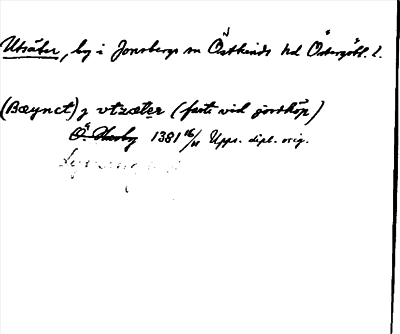 Utsäter, by i Jonsbergs sn Östkinds hd Östergötl. l.
(Bæynct) j vtzæter (faste vid jordköp)
Ö. Husby 1381 16/11 Upps. dipl. orig.